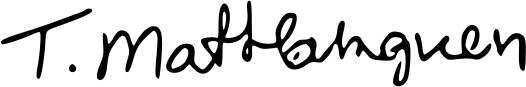 T. Matthanguen